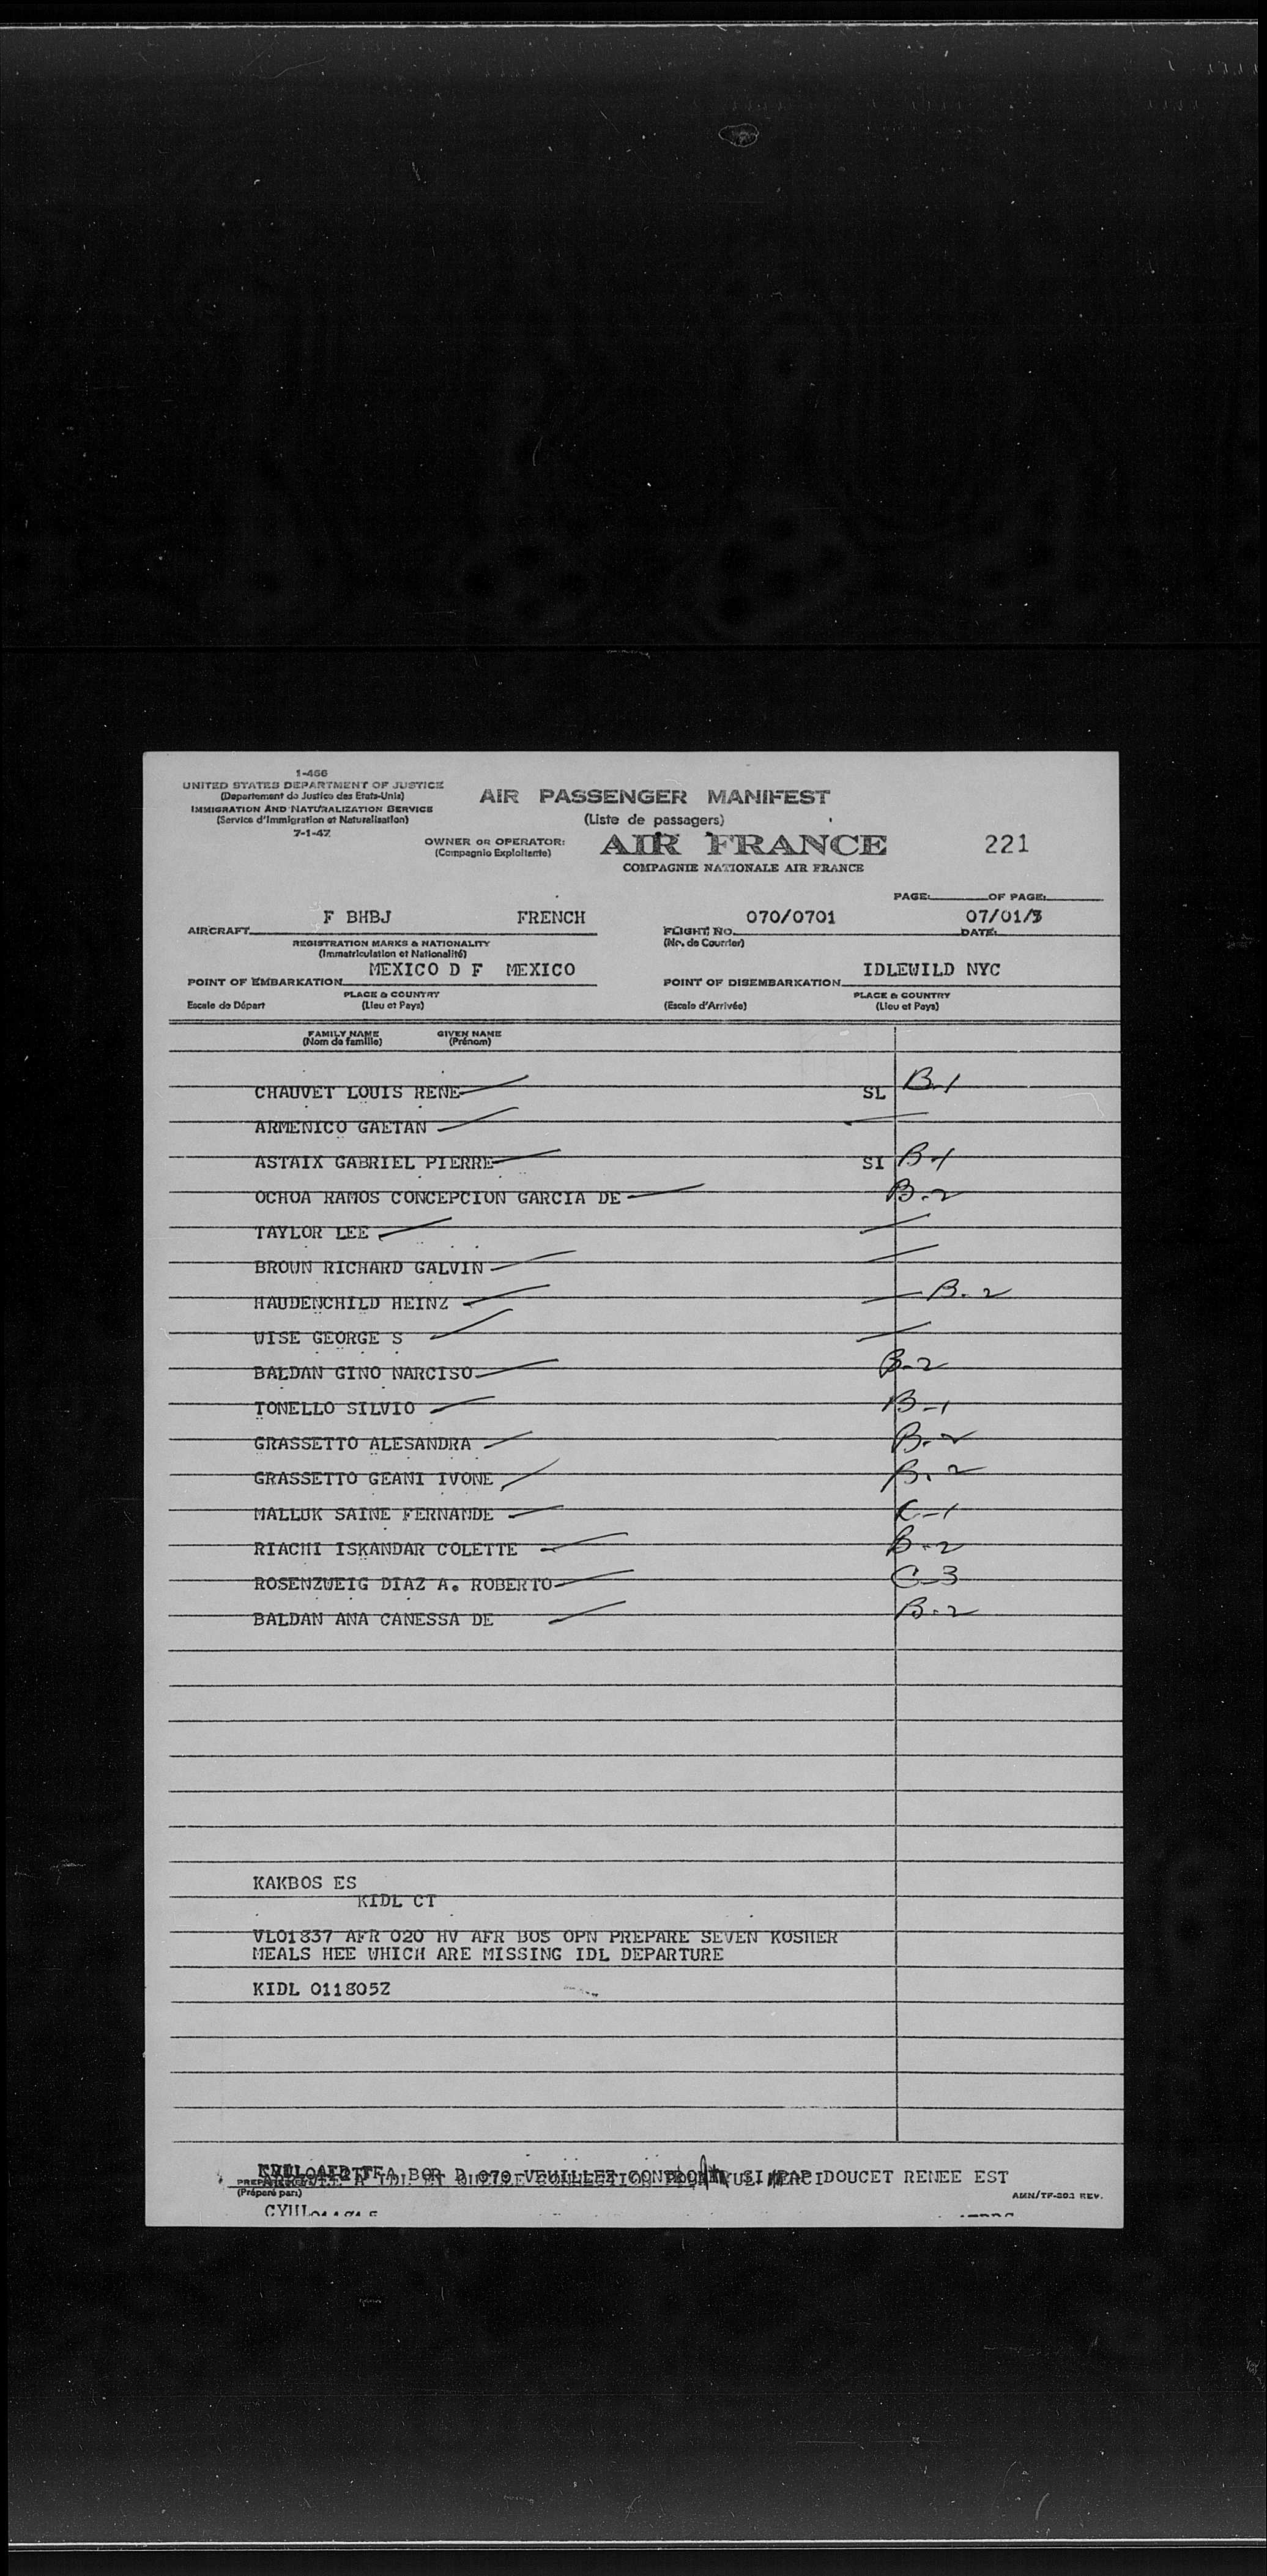 1-466
UNITED STATES DEPARTMENT OF JUSTICE
(Departement de Justice des Etats-Unis)
IMMIGRATION AND NATURALIZATION SERVICE
(Service d'Immigration et Naturalisation)
7-1-47
AIR PASSENGER MANIFEST
(Liste de passagers)
OWNER OR OPERATOR:
(Compagnie Exploitante)
AIR FRANCE
COMPAGNIE NATIONALE AIR FRANCE
221
PAGE: OF PAGE:
AIRCRAFT F BHBJ FRENCH
REGISTRATION MARKS & NATIONALITY
(Immatriculation et Nationalité)
FLIGHT NO. 070/0701
(No. de Courrier)
07/01/
DATE:
POINT OF EMBARKATION MEXICO D F MEXICO
Escale de Départ
PLACE & COUNTRY
(Lieu et Pays)
POINT OF DISEMBARKATION IDLEWILD NYC
(Escale d'Arrivée)
PLACE & COUNTRY
(Lieu et Pays)
FAMILY NAME GIVEN NAME
(Nom de famille) (Prénom)
CHAUVET LOUIS RENE SL B-1
ARMENICO GAETAN
ASTAIX GABRIEL PIERRE SI B-1
OCHOA RAMOS CONCEPCION GARCIA DE B-2
TAYLOR LEE
BROWN RICHARD GALVIN
HAUDENCHILD HEINZ B-2
WISE GEORGE S
BALDAN GINO NARCISO B-2
TONELLO SILVIO B-1
GRASSETTO ALESANDRA B-2
GRASSETTO GEANI IVONE B-2
MALLUK SAINE FERNANDE C-1
RIACHI ISKANDAR COLETTE B-2
ROSENZWEIG DIAZ A. ROBERTO C-3
BALDAN ANA CANESSA DE B-2
KAKBOS ES
KIDL CT
VL01837 AFR 020 HV AFR BOS OPN PREPARE SEVEN KOSHER
MEALS HEE WHICH ARE MISSING IDL DEPARTURE
KIDL 011805Z
DOUCET RENEE EST
(Préparé par:)
AMN/TF-20.1 REV.